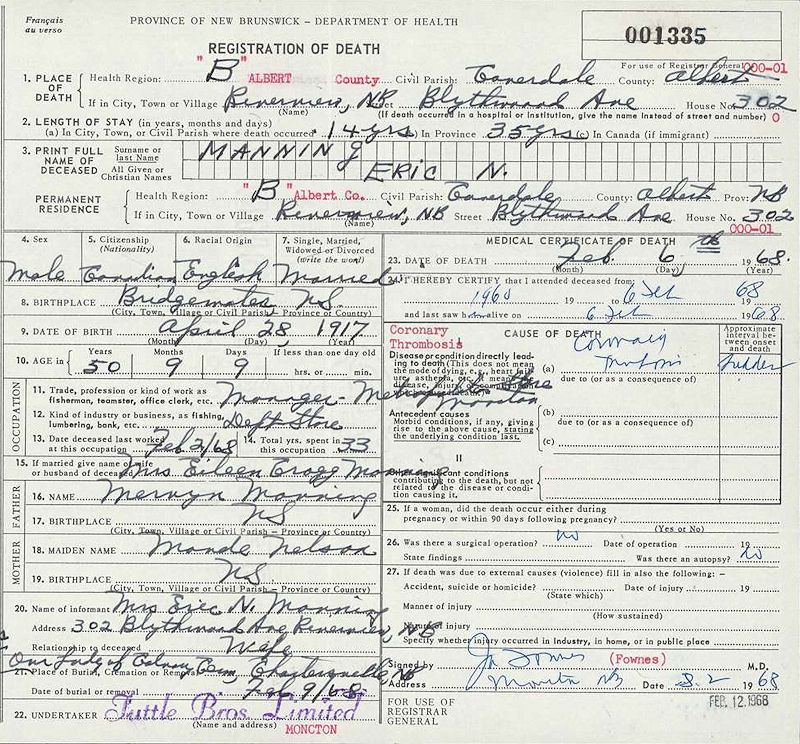 Français
au verso
PROVINCE OF NEW BRUNSWICK – DEPARTMENT OF HEALTH
001335
REGISTRATION OF DEATH
For use of Registrar General 000-01
1. PLACE OF DEATH
Health Region: "B" ALBERT County Civil Parish: Coverdale County: Albert
If in City, Town or Village Riverview, NB Street Blythwood Ave House No. 302
(Name) (If death occurred in a hospital or institution, give the name instead of street and number) 0
2. LENGTH OF STAY (in years, months and days)
(a) In City, Town, or Civil Parish where death occurred 14 yrs In Province 35 yrs (c) In Canada (if immigrant)
3. PRINT FULL NAME OF DECEASED
Surname or last Name MANNING
All Given or Christian Names ERIC N.
PERMANENT RESIDENCE
Health Region: "B" Albert Co. Civil Parish: Coverdale County: Albert Prov: NB
If in City, Town or Village Riverview, NB Street Blythwood Ave House No. 302
(Name) 000-01
4. Sex 5. Citizenship (Nationality) 6. Racial Origin 7. Single, Married, Widowed or Divorced (write the word)
Male Canadian English Married
8. BIRTHPLACE Bridgewater NS
(City, Town, Village or Civil Parish – Province or Country)
9. DATE OF BIRTH April 28 1917
(Month) (Day) (Year)
10. AGE in Years Months Days If less than one day old
50 9 9 hrs. or min.
OCCUPATION
11. Trade, profession or kind of work as fisherman, teamster, office clerk, etc. Manager - Metropolitan Store
Moncton
12. Kind of industry or business, as fishing, lumbering, bank, etc. Dept Store
13. Date deceased last worked at this occupation Feb 2/68 14. Total yrs. spent in this occupation 33
15. If married give name of wife or husband of deceased Mrs Eileen Cragg Manning
FATHER
16. NAME Mervyn Manning
17. BIRTHPLACE NS
(City, Town, Village or Civil Parish – Province or Country)
MOTHER
18. MAIDEN NAME Maude Nelson
19. BIRTHPLACE NS
(City, Town, Village or Civil Parish – Province or Country)
20. Name of informant Mrs Eric N. Manning
Address 302 Blythwood Ave Riverview, NB
Relationship to deceased Wife
Our Lady of Calvary Cem,
21. Place of Burial, Cremation or Removal NB
Date of burial or removal Feb 9/68
22. UNDERTAKER Tuttle Bros. Limited
(Name and address) MONCTON
MEDICAL CERTIFICATE OF DEATH
23. DATE OF DEATH Feb. 6 th 1968.
(Month) (Day) (Year)
24. I HEREBY CERTIFY that I attended deceased from:
1960 19 to 6 Feb 68
and last saw him alive on 6 Feb 1968
Coronary Thrombosis
CAUSE OF DEATH
Approximate interval between onset and death
I
Disease or condition directly leading to death (This does not mean the mode of dying, e.g., heart failure, asthenia, etc.
(a) Coronary Sudden
due to (or as a consequence of)
Antecedent causes
Morbid conditions, if any, giving rise to the above cause, stating the underlying condition last.
(b)
due to (or as a consequence of)
(c)
II
Other significant conditions contributing to the death, but not related to the disease or condition causing it.
25. If a woman, did the death occur either during pregnancy or within 90 days following pregnancy?
(Yes or No)
26. Was there a surgical operation? no Date of operation 19
State findings Was there an autopsy? No
27. If death was due to external causes (violence) fill in also the following: –
Accident, suicide or homicide? Date of injury 19
(State which)
Manner of injury
(How sustained)
Nature of injury
Specify whether injury occurred in industry, in home, or in public place
Signed by (Fownes) M.D.
Address Moncton NB Date 8.2 1968
FOR USE OF REGISTRAR GENERAL
FEB. 12. 1968